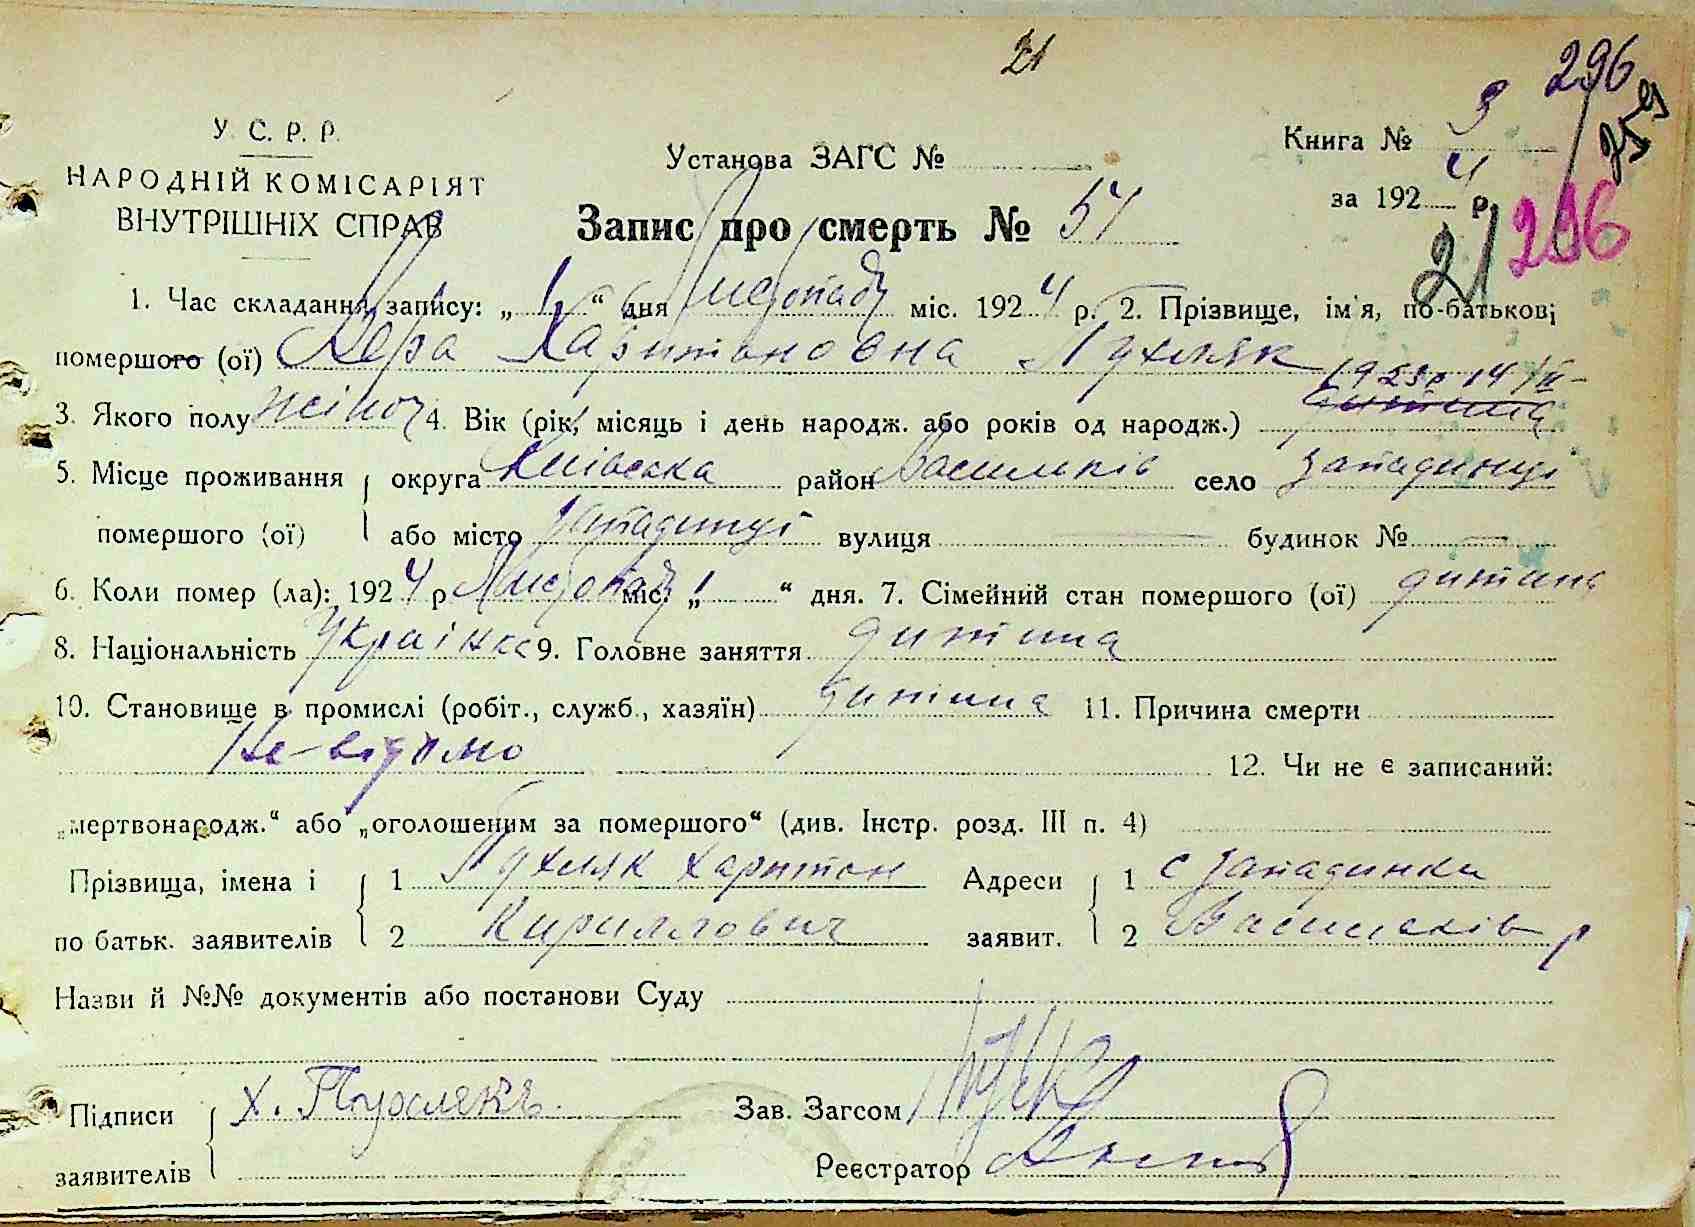 21
296
У. С. Р. Р.
НАРОДНІЙ КОМІСАРІЯТ
ВНУТРІШНІХ СПРАВ
Установа ЗАГС №
Книга № 3
за 1924 р.
21 296
Запис про смерть № 54
1. Час складання запису: „ 1 “ дня Листопад міс. 1924 р. 2. Прізвище, ім'я, по-батькові
помершого (ої) Вера Харитоновна Пухляк
1923 р 14/II
3. Якого полу жіноч 4. Вік (рік, місяць і день народж. або років од народж.) дитина
5. Місце проживання округа Київська район Васильків село Западинці
помершого (ої) або місто Западинці вулиця — будинок № —
6. Коли помер (ла): 1924 р Листопад міс. „ 1 “ дня. 7. Сімейний стан помершого (ої) дитина
8. Національність Українка 9. Головне заняття дитина
10. Становище в промислі (робіт., служб., хазяїн) дитина 11. Причина смерти
Не-відомо 12. Чи не є записаний:
„мертвонародж.“ або „оголошеним за помершого“ (див. Інстр. розд. III п. 4)
Прізвища, імена і 1 Пухляк Харитон Адреси 1 с Западинки
по батьк. заявителів 2 Кириллович заявит. 2 Васильків р
Назви й №№ документів або постанови Суду
Підписи Х. Пухлякъ Зав. Загсом
заявителів Реєстратор